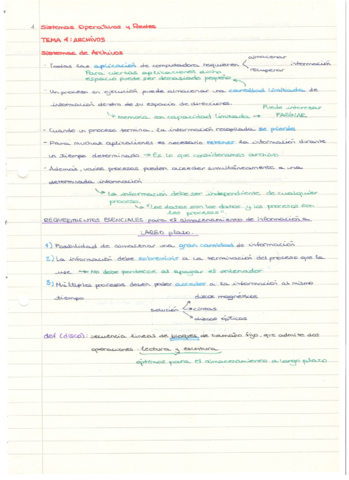 1 Sistemas Operativos y Redes
TEMA 4: ARCHIVOS
Sistemas de Archivos
almacenar
· Todas las aplicación de computadora requieren información
recuperar
Para ciertas aplicaciones dicho
espacio puede ser demasiado pequeño
· Un proceso en ejecución puede almacenar una cantidad limitada de
información dentro de su espacio de direcciones.
Puede interesar
Memoria su capacidad limitada → PAGINAR
· Cuando un proceso termina. La información recopilada se pierde
· Para muchas aplicaciones es necesario retener la información durante
un tiempo determinado → Es lo que consideramos archivo
· Además, varios procesos pueden acceder simultáneamente a una
determinada información
La información debe ser independiente de cualquier
proceso
"Los datos son los datos y los procesos son
los procesos"
REQUERIMIENTOS ESENCIALES para el almacenamiento de información a
LARGO plazo
1) Posibilidad de almacenar una gran cantidad de información
2) La información debe sobrevivir a la terminación del proceso que la
use → No debe perderse al apagar el ordenador
3) Múltiples procesos deben poder acceder a la información al mismo
tiempo
discos magnéticos
solución cintas
discos ópticos
def (disco): secuencia lineal de bloques de tamaño fijo, que admite dos
operaciones: lectura y escritura
óptimos para el almacenamiento a largo plazo